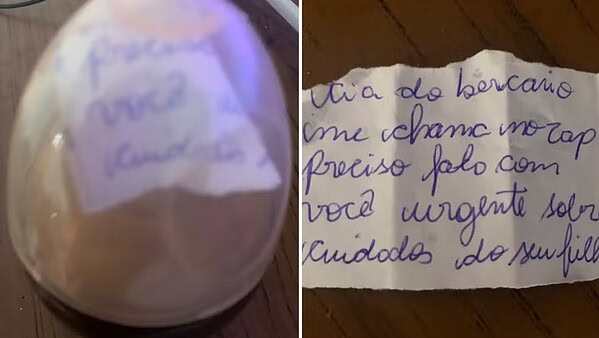 preciso
você
cuidados
tia do bercario
me chama no zap
preciso falo com
você urgente sobr
cuidados do seu filh